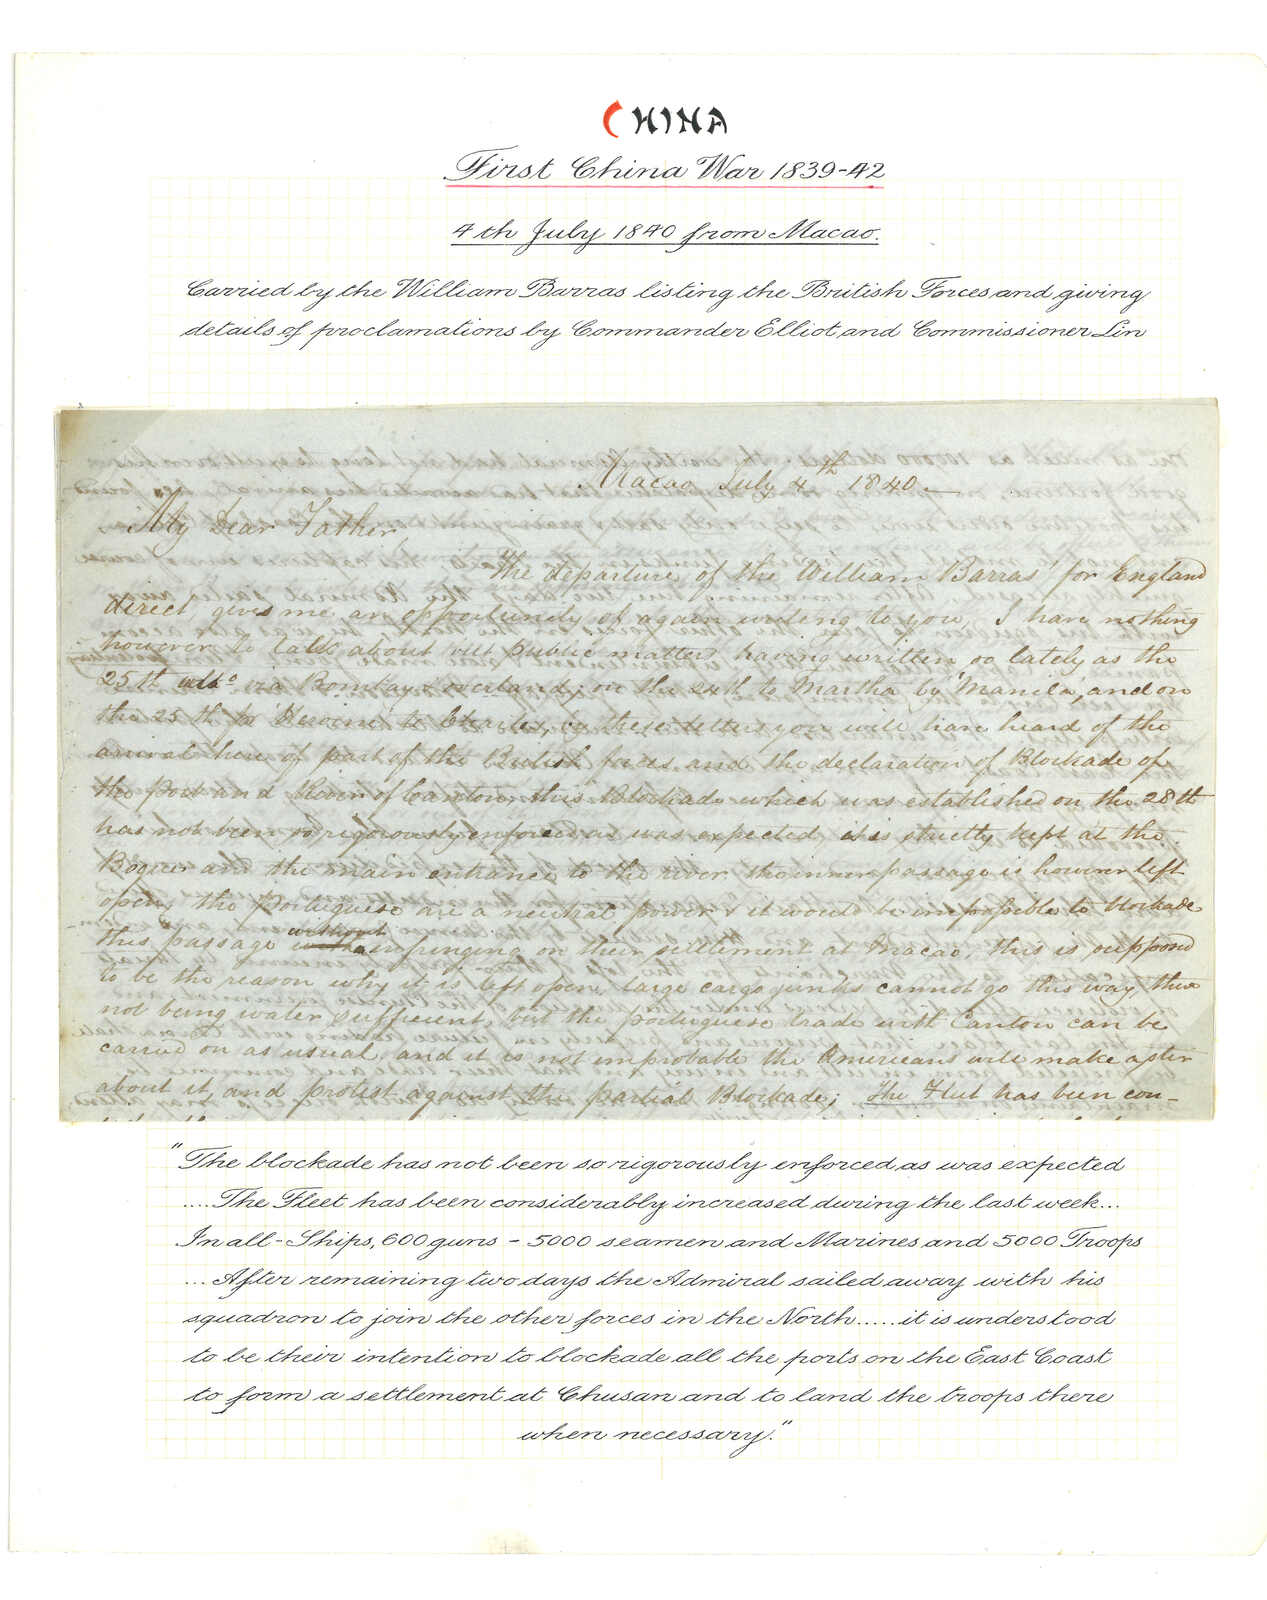 CHINA
First China War 1839-42
4th July 1840 from Macao.
Carried by the William Barras listing the British Forces and giving
details of proclamations by Commander Elliot and Commissioner Lin
Macao July 4th 1840.—
My Dear Father,
The departure of the 'William Barras' for England
direct, gives me an opportunity of again writing to you, I have nothing
however to talk about but public matters having written so lately as the
25th ulto via Bombay & overland; on the 24th to Martha by 'Manila', and on
the 25th to 'Heroine' to Charles, by these letters you will have heard of the
arrival here of part of the British forces and the declaration of Blockade of
the Port and River of Canton, this Blockade which was established on the 28th
has not been so rigorously enforced as was expected, it is strictly kept at the
Bogue and the main entrance to the river the inner passage is however left
open, the Portuguese are a neutral power & it would be impossible to blockade
this passage without infringing on their settlement at Macao, this is supposed
to be the reason why it is left open, large cargo junks cannot go this way, there
not being water sufficient, but the portuguese trade with Canton can be
carried on as usual, and it is not improbable the Americans will make a stir
about it, and protest against the partial Blockade; The Fleet has been con-
"The blockade has not been so rigorously enforced as was expected
.....The Fleet has been considerably increased during the last week...
In all - Ships, 600 guns - 5000 seamen and Marines and 5000 Troops
...After remaining two days the Admiral sailed away with his
squadron to join the other forces in the North.....it is understood
to be their intention to blockade all the ports on the East Coast
to form a settlement at Chusan and to land the troops there
when necessary."